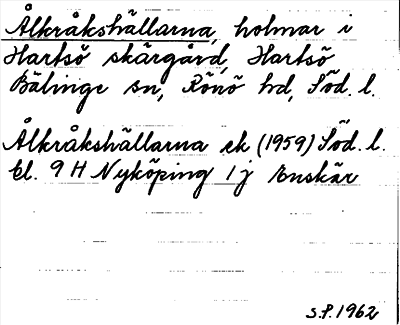 Ålkråkshällarna, holmar i
Hartsö skärgård, Hartsö
Bälinge sn, Rönö hd, Söd. l.
Ålkråkshällarna ek (1959) Söd. l.
bl. 9 H Nyköping 1 j Enskär
S.P. 1962